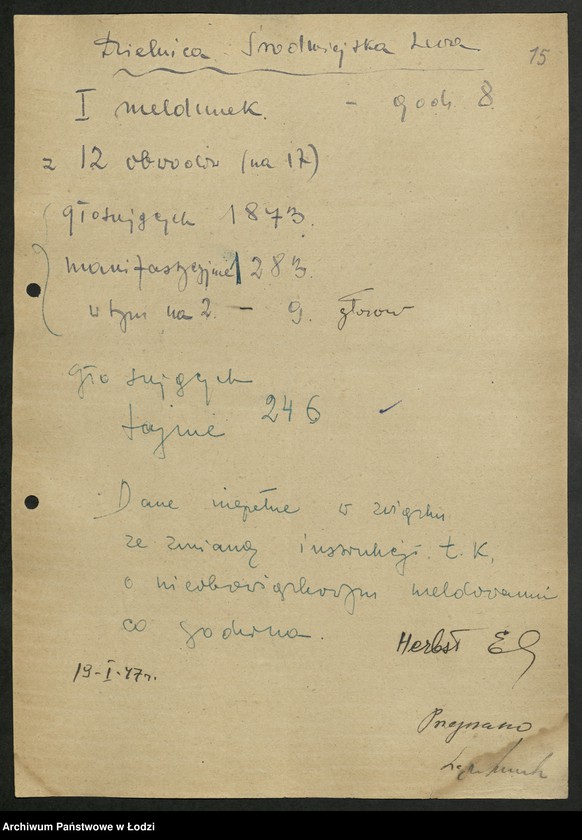 Dzielnica Śródmiejska Lewa
15
I meldunek. - godz. 8.
z 12 obwodów (na 17)
głosujących 1873.
manifestacyjnie 1283.
w tym na 2. - 9. głosów
głosujących
tajnie 246
Dane niepełne w związku
ze zmianą instrukcji Ł.K.
o nieobowiązkowym meldowaniu
co godzina.
Herbst E
19-I-47r.
Przyjęto
Archiwum Państwowe w Łodzi